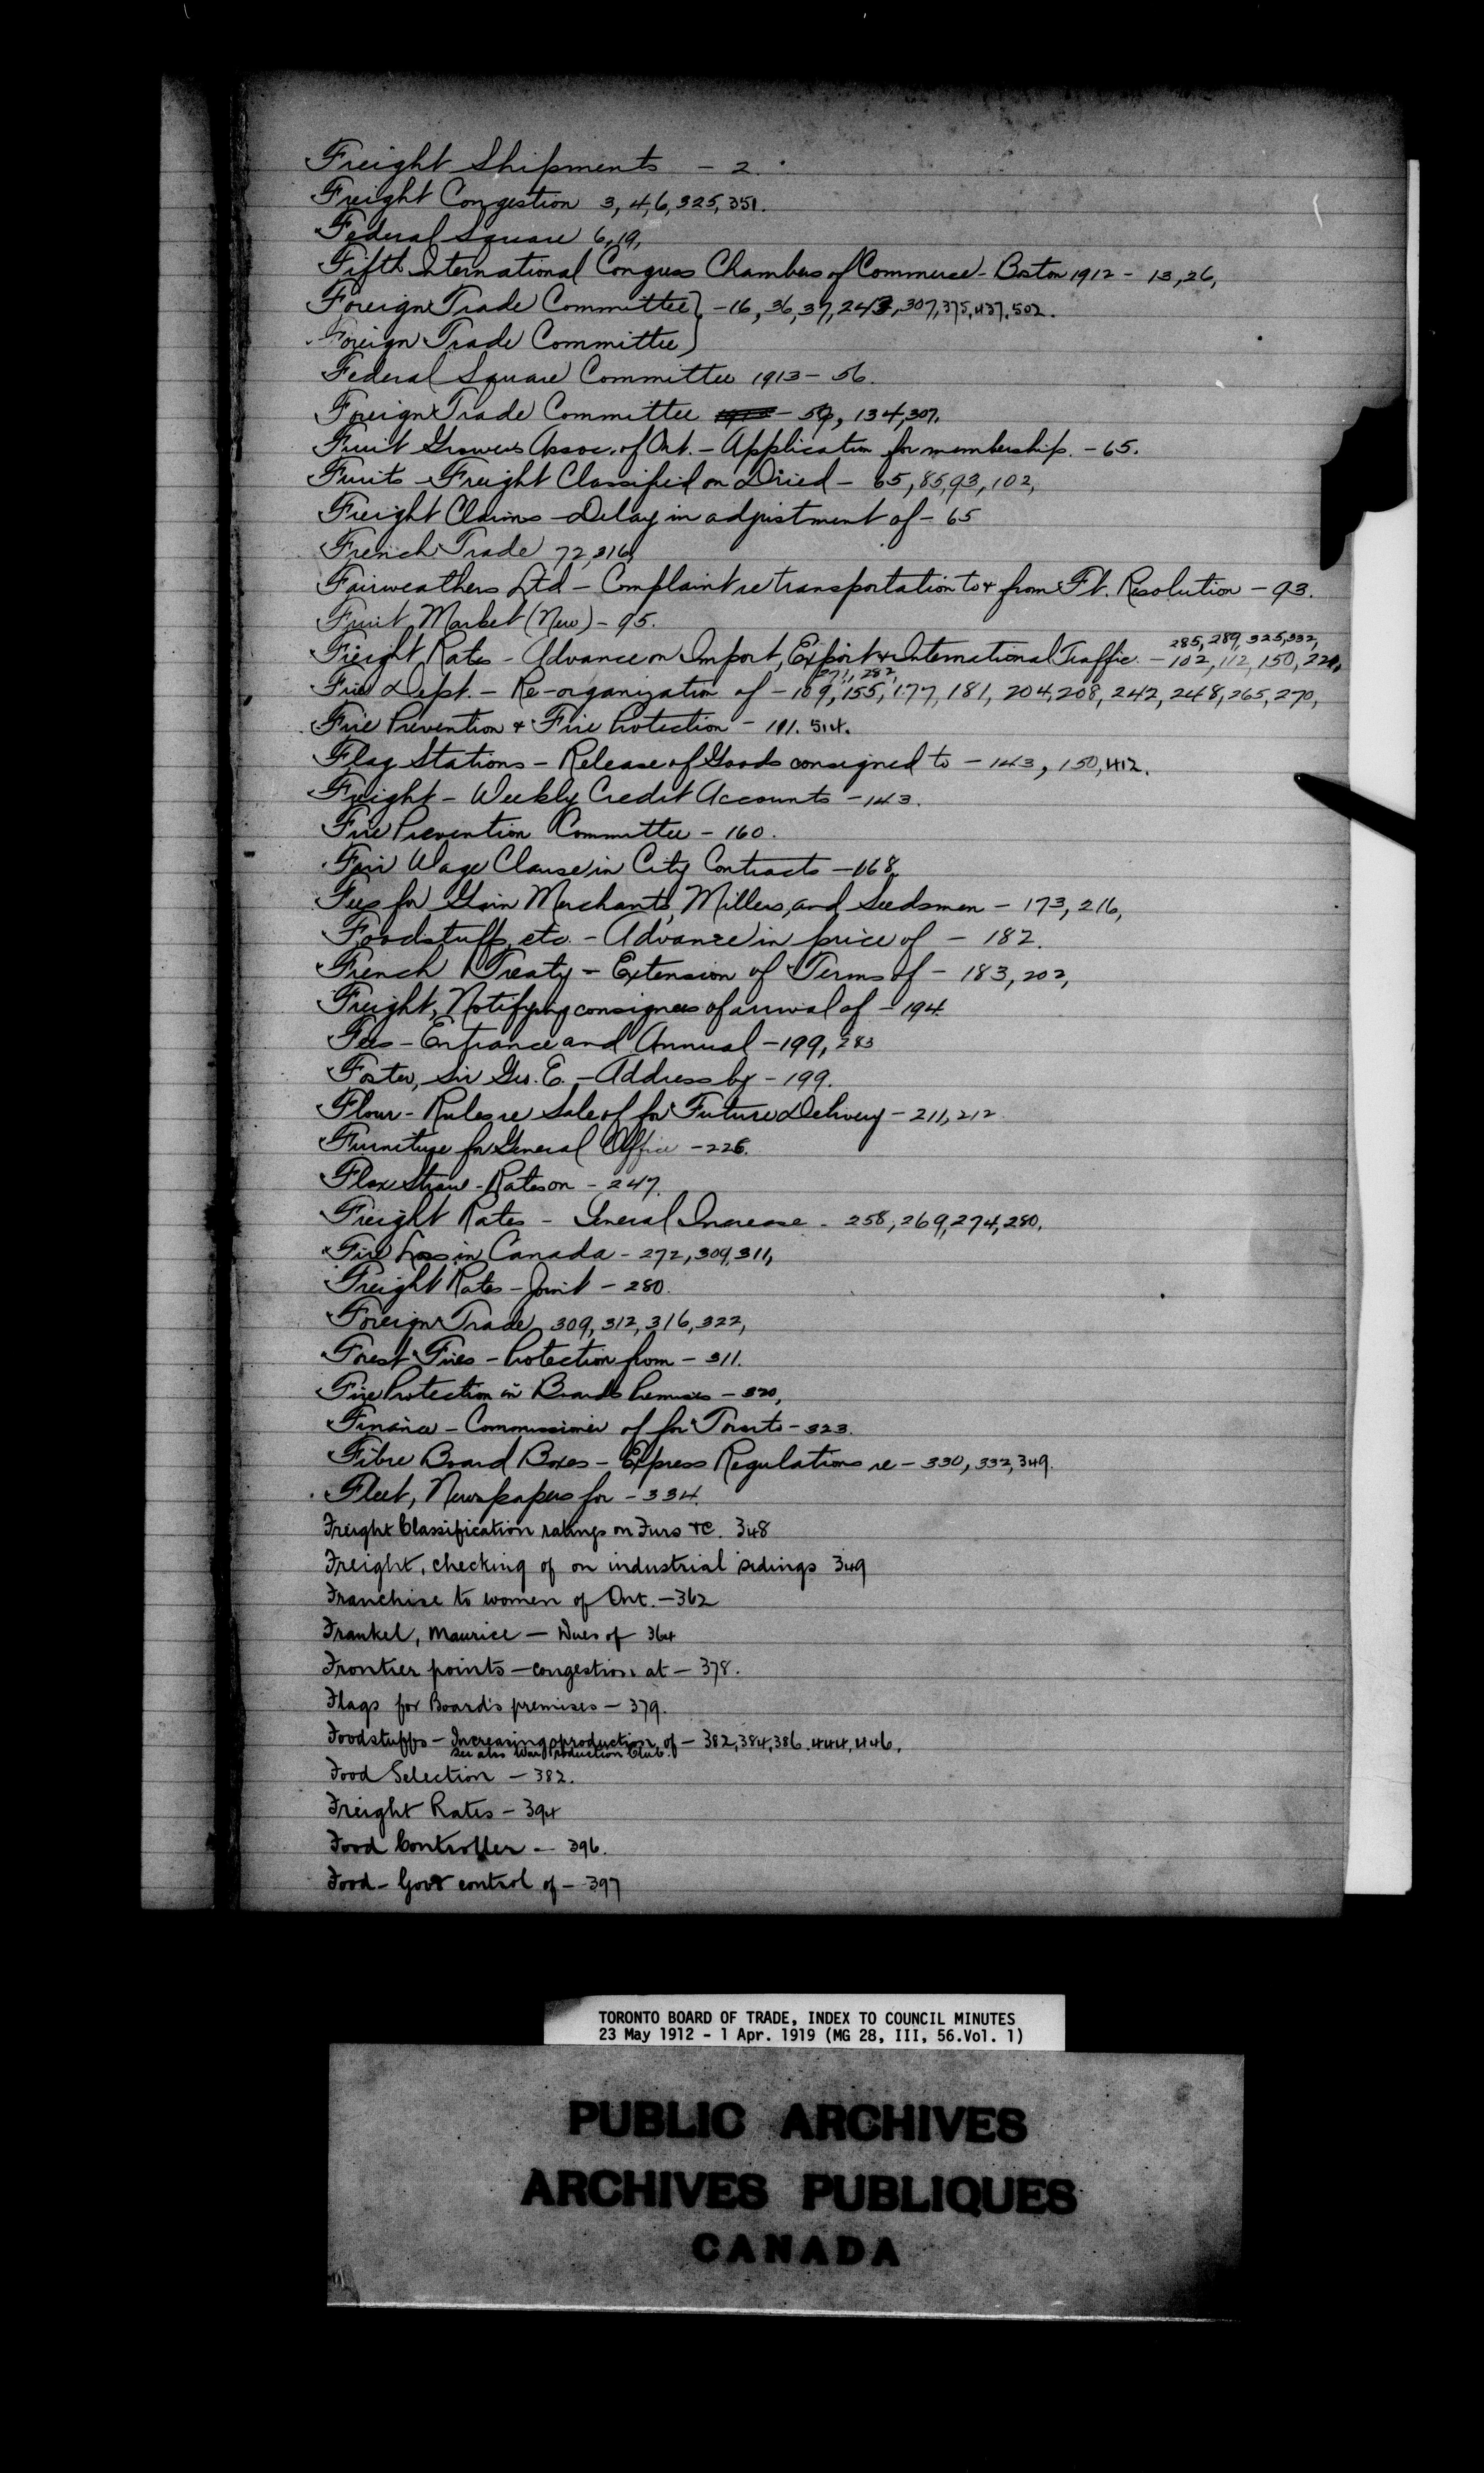 Freight Shipments - 2.
Freight Congestion 3, 4, 6, 325, 351.
Federal Square 6, 19,
Fifth International Congress Chambers of Commerce - Boston 1912 - 13, 26,
Foreign Trade Committee } - 16, 36, 37, 243, 307, 375, 437, 502.
Foreign Trade Committee }
Federal Square Committee 1913 - 56.
Foreign Trade Committee 1913 - 59, 134, 307.
Fruit Growers Assoc. of Ont. - Application for membership. - 65.
Fruits - Freight Classified on Dried - 65, 85, 93, 102,
Freight Claims - Delay in adjustment of - 65
French Trade 72, 316,
Fairweathers Ltd - Complaint re transportation to & from Ft. Resolution - 93.
Fruit Market (New) - 95.
285, 289, 325, 332,
Freight Rates - Advance on Import, Export & International Traffic. - 102, 112, 150, 221,
271, 282,
Fire Dept. - Re-organization of - 109, 155, 177, 181, 204, 208, 242, 248, 265, 270,
Fire Prevention & Fire Protection - 191. 514.
Flag Stations - Release of Goods consigned to - 143, 150, 412.
Freight - Weekly Credit Accounts - 143.
Fire Prevention Committee - 160.
Fair Wage Clause in City Contracts - 168,
Fees for Grain Merchants, Millers, and Seedsmen - 173, 216,
Foodstuffs, etc. - Advance in price of - 182.
French Treaty - Extension of Terms of - 183, 202,
Freight, Notifying consignees of arrival of - 194.
Fees - Entrance and Annual - 199, 283
Foster, Sir Geo. E. - Address by - 199.
Flour - Rules re Sale of for Future Delivery - 211, 212
Furniture for General Office - 226.
Flax Straw - Rates on - 247.
Freight Rates - General Increase - 258, 269, 274, 280,
Fire Loss in Canada - 272, 309, 311,
Freight Rates - Joint - 280.
Foreign Trade, 309, 312, 316, 322,
Forest Fires - Protection from - 311.
Fire Protection in Boards Premises - 320,
Finance - Commissioner of for Toronto - 323.
Fibre Board Boxes - Express Regulations re - 330, 332, 349.
Fleet, Newspapers for - 334.
Freight Classification ratings on Furs &c. 348
Freight, checking of on industrial sidings 349
Franchise to women of Ont. - 362
Frankel, Maurice - Dues of 364
Frontier points - congestion at - 378.
Flags for Board's premises - 379.
Foodstuffs - Increasing production of - 382, 384, 386. 444, 446.
See also War Production Club.
Food Selection - 382.
Freight Rates - 394
Food Controller - 396.
Food - Govt control of - 397
TORONTO BOARD OF TRADE, INDEX TO COUNCIL MINUTES
23 May 1912 - 1 Apr. 1919 (MG 28, III, 56.Vol. 1)
PUBLIC ARCHIVES
ARCHIVES PUBLIQUES
CANADA